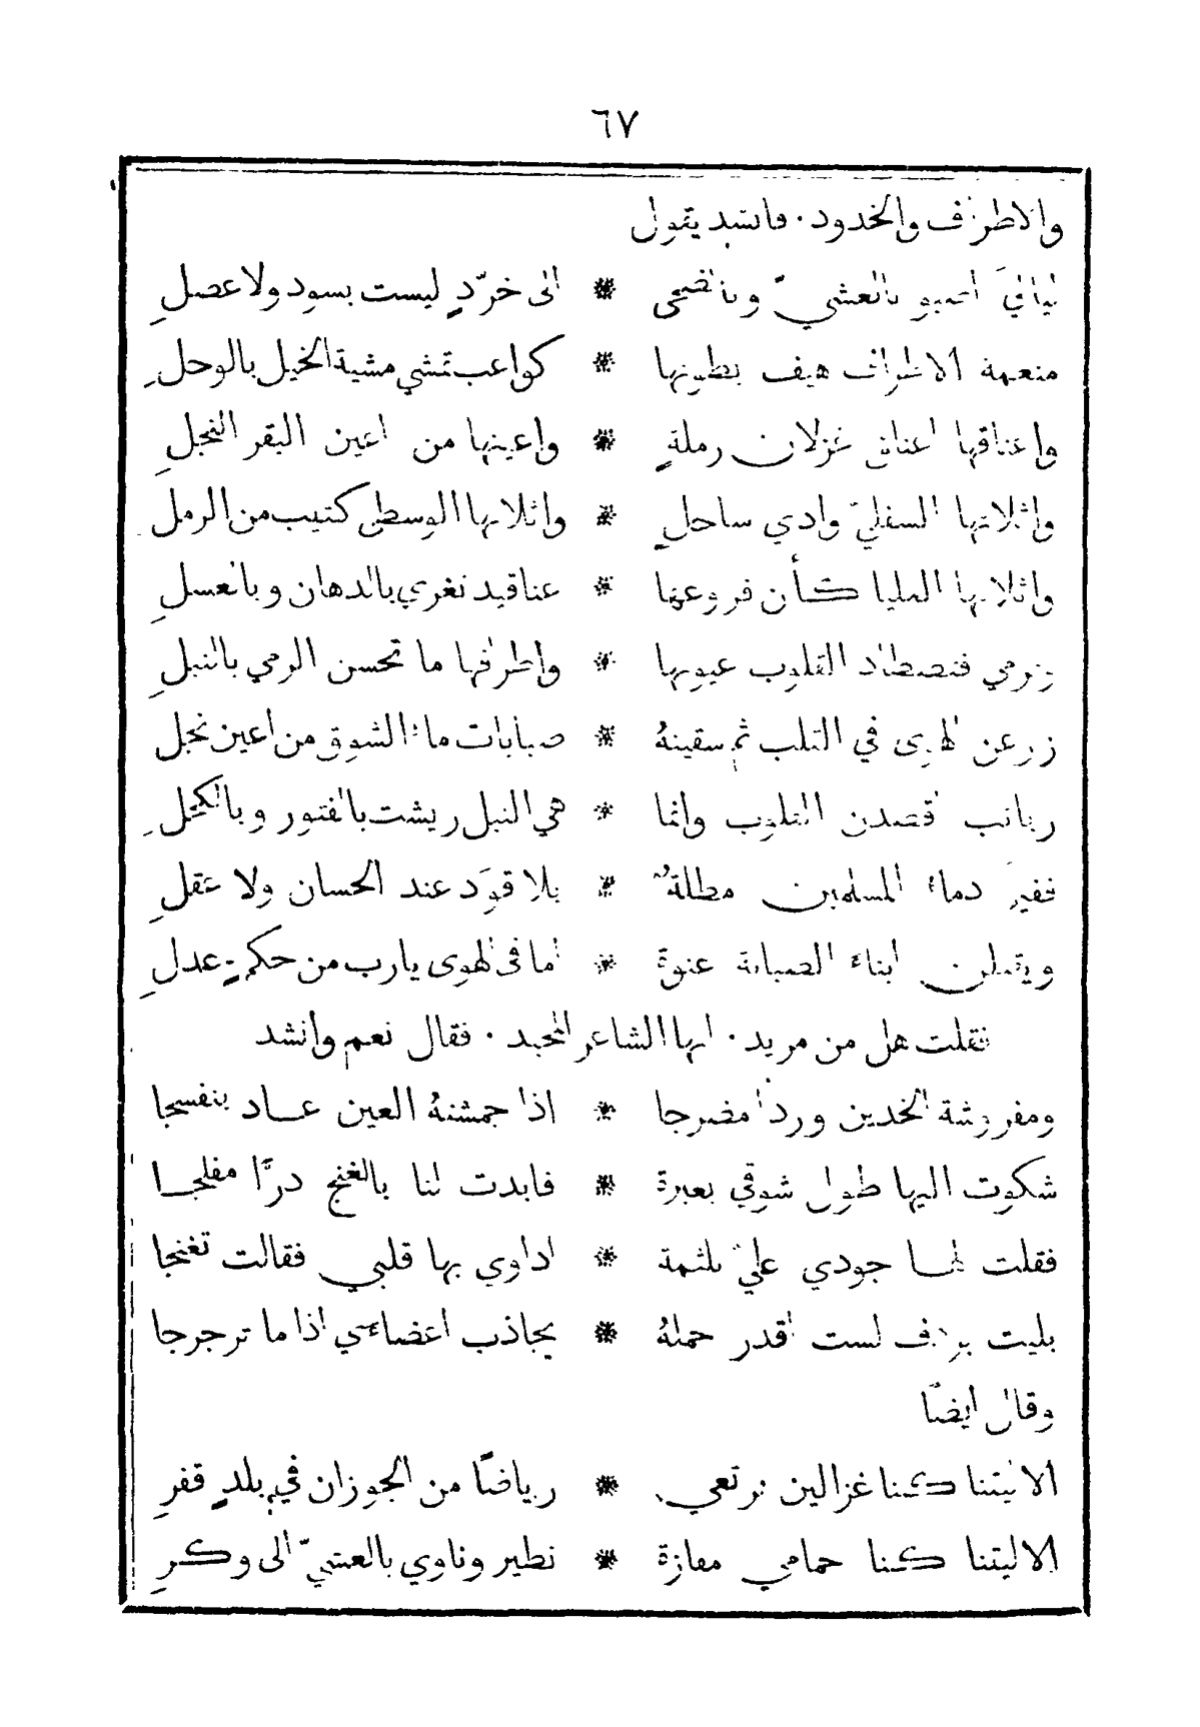 ٦٧
والاطراف والخدود · فانشد يقول
لياليَ اصبو بالعشيّ وبالضحى * الى خرّدٍ ليست بسود ولا عصلِ
منعمة الاطراف هيف بطونها * كواعب تمشي مشية الخيل بالوحلِ
واعناقها اعناق غزلان رملةٍ * واعينها من اعين البقر النجلِ
واثلاثها السفليّ وادي ساحلٍ * واثلاثها الوسطى كثيب من الرمل
واثلاثها العليا كأن فروعها * عناقيد تغري بالدهان وبالعسلِ
وترمي فتصطاد القلوب عيونها * واطرافها ما تحسن الرمي بالنبلِ
زرعن الهوى في القلب ثم سقينهُ * صبابات ماء الشوق من اعين نجل
ربائب اقصدن القلوب وانما * هي النبل ريشت بالفتور وبالكحلِ
ففيمَ دماء المسلمين مطلةٌ * بلا قوَد عند الحسان ولا عقلِ
ويقتلن ابناء الصبابة عنوة * أما في الهوى يارب من حكمٍ عدلِ
فقلت هل من مزيد · ايها الشاعر المجيد · فقال نعم وانشد
ومفروشة الخدين وردًا مضرجا * اذا جمشتهُ العين عاد بنفسجا
شكوت اليها طول شوقي بعبرة * فابدت لنا بالغنج درًّا مفلجا
فقلت لها جودي عليّ بلثمة * اداوي بها قلبي فقالت تغنجا
بليت بردف لست اقدر حملهُ * يجاذب اعضاءي اذا ما ترجرجا
وقال ايضًا
الا ليتنا كنا غزالين نرتعي * رياضًا من الجوزان في بلدٍ قفرِ
الا ليتنا كنا حمامي مفازة * نطير وناوي بالعشيّ الى وكرِ